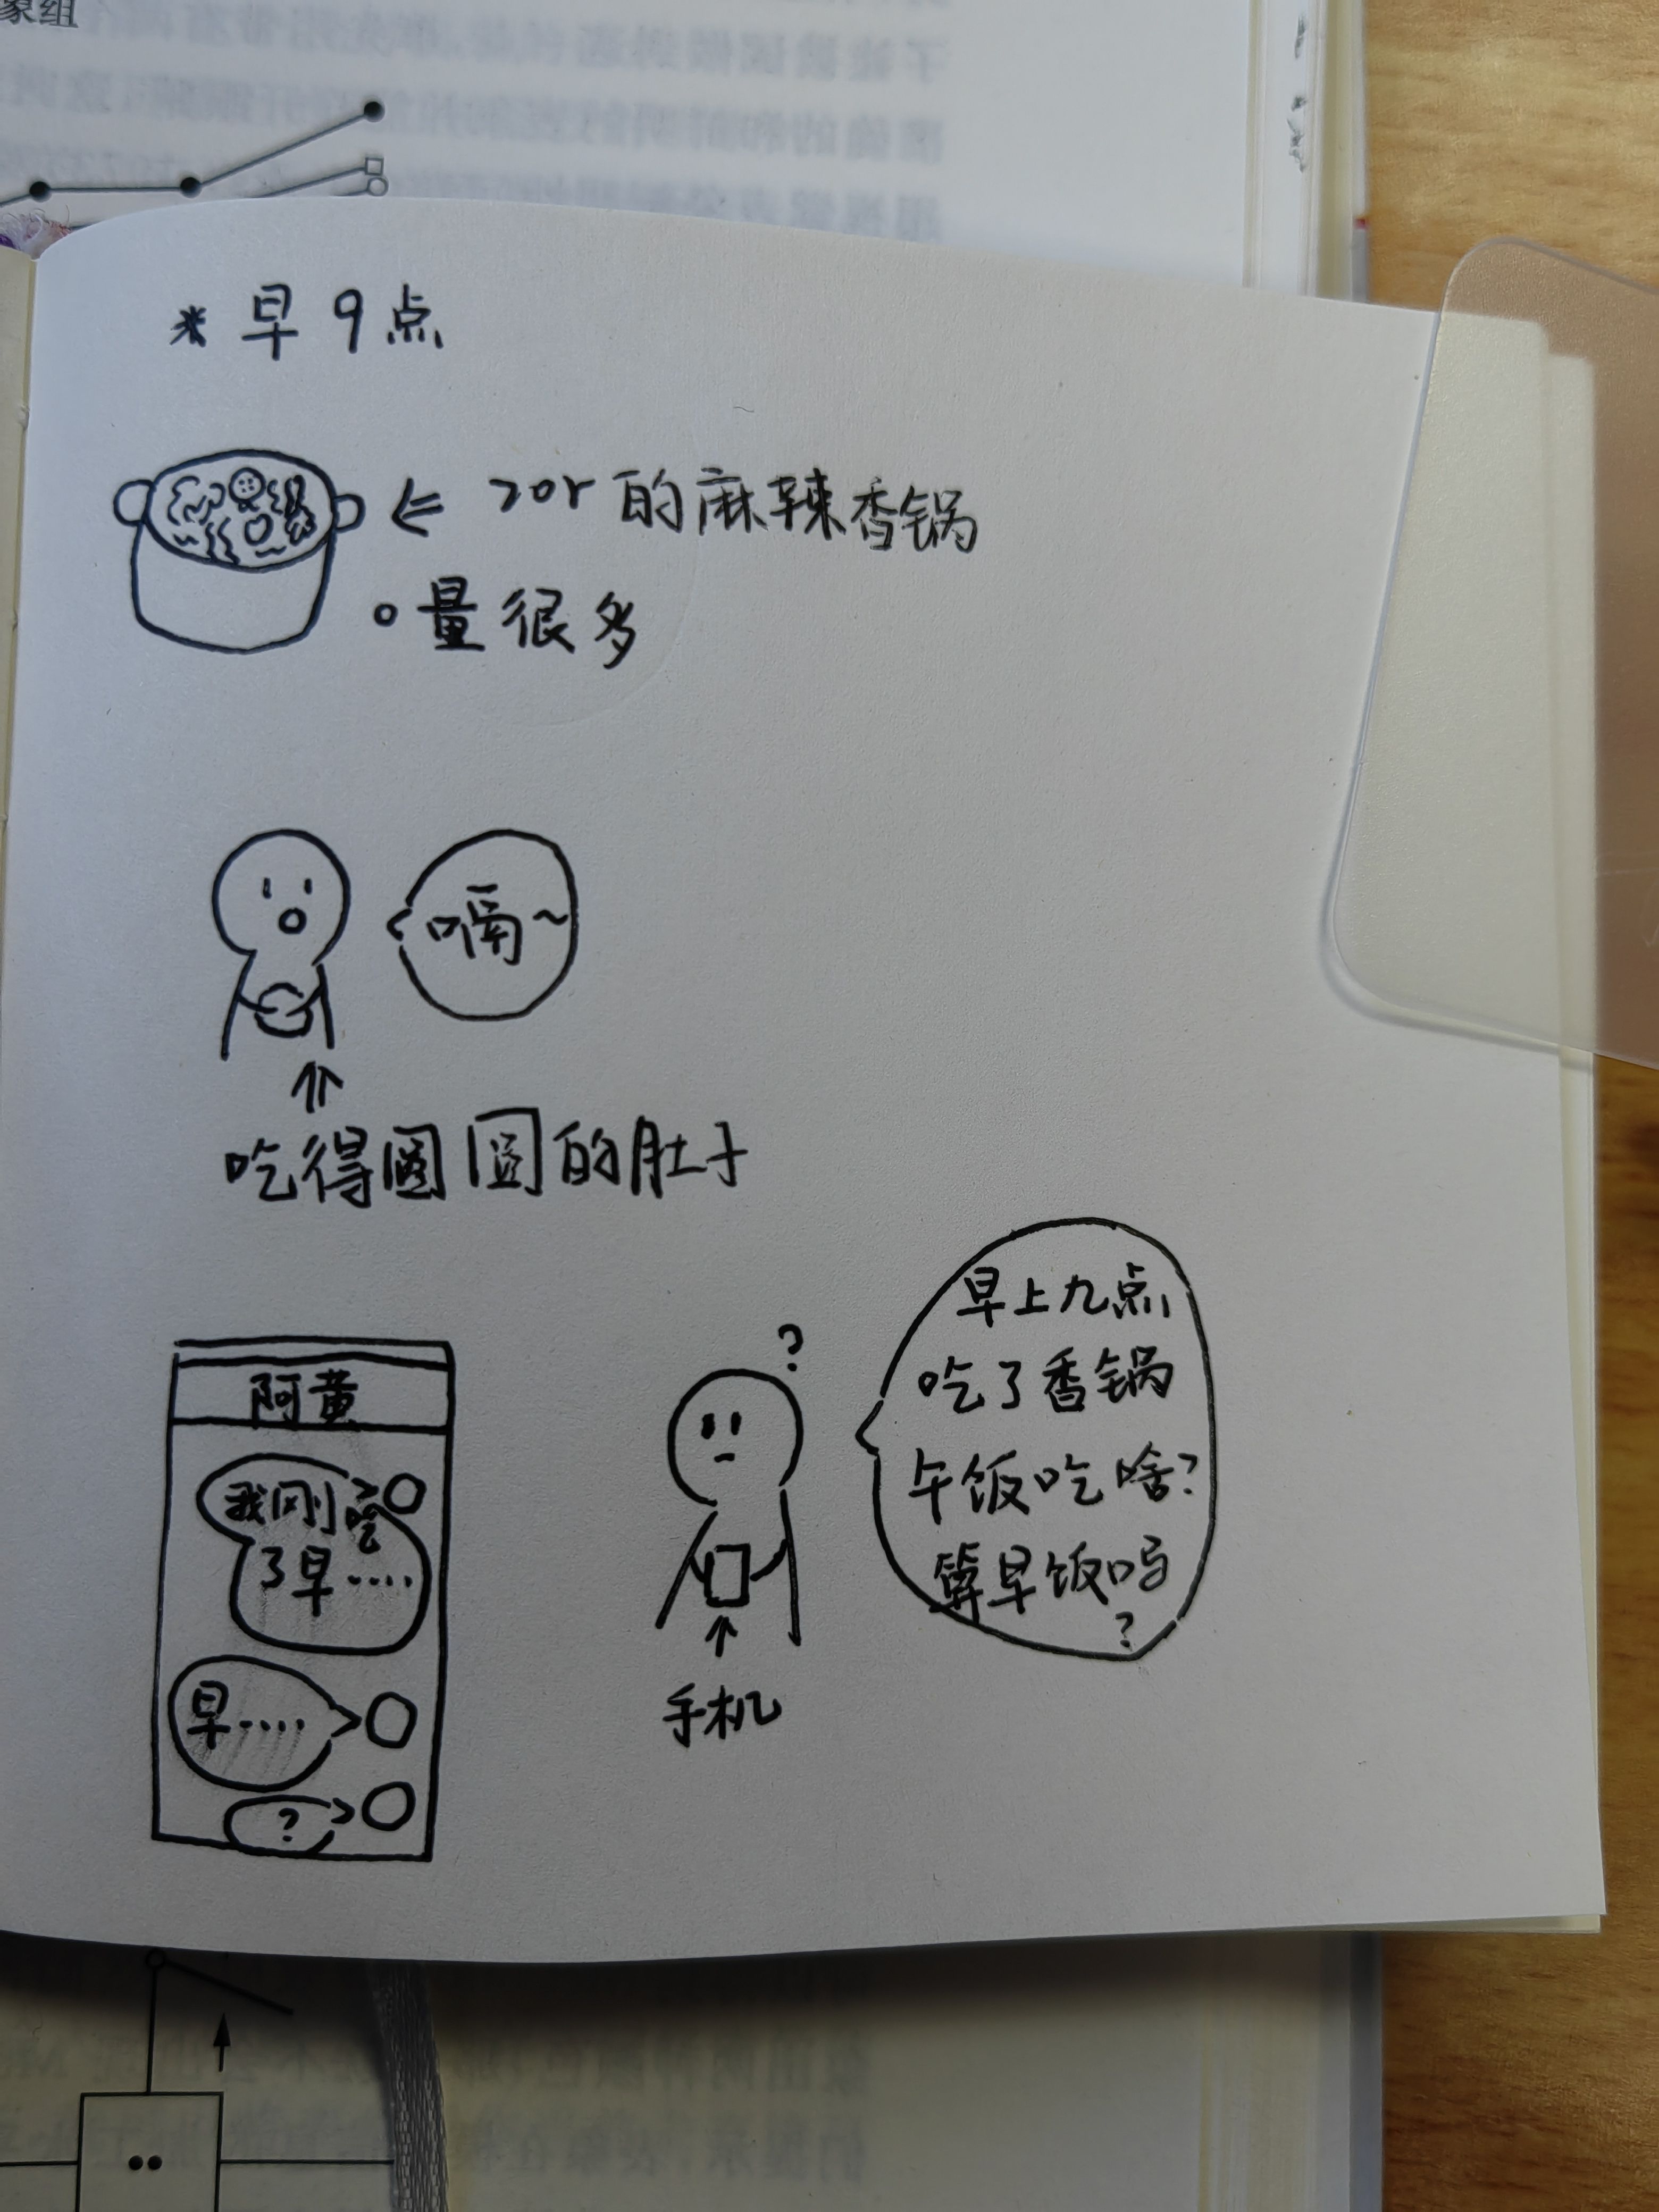 象组
* 早9点
20r的麻辣香锅
○量很多
嗝~
吃得圆圆的肚子
阿黄
我刚吃
了早····
早····
?
?
手机
早上九点
吃了香锅
午饭吃啥?
算早饭吗
?